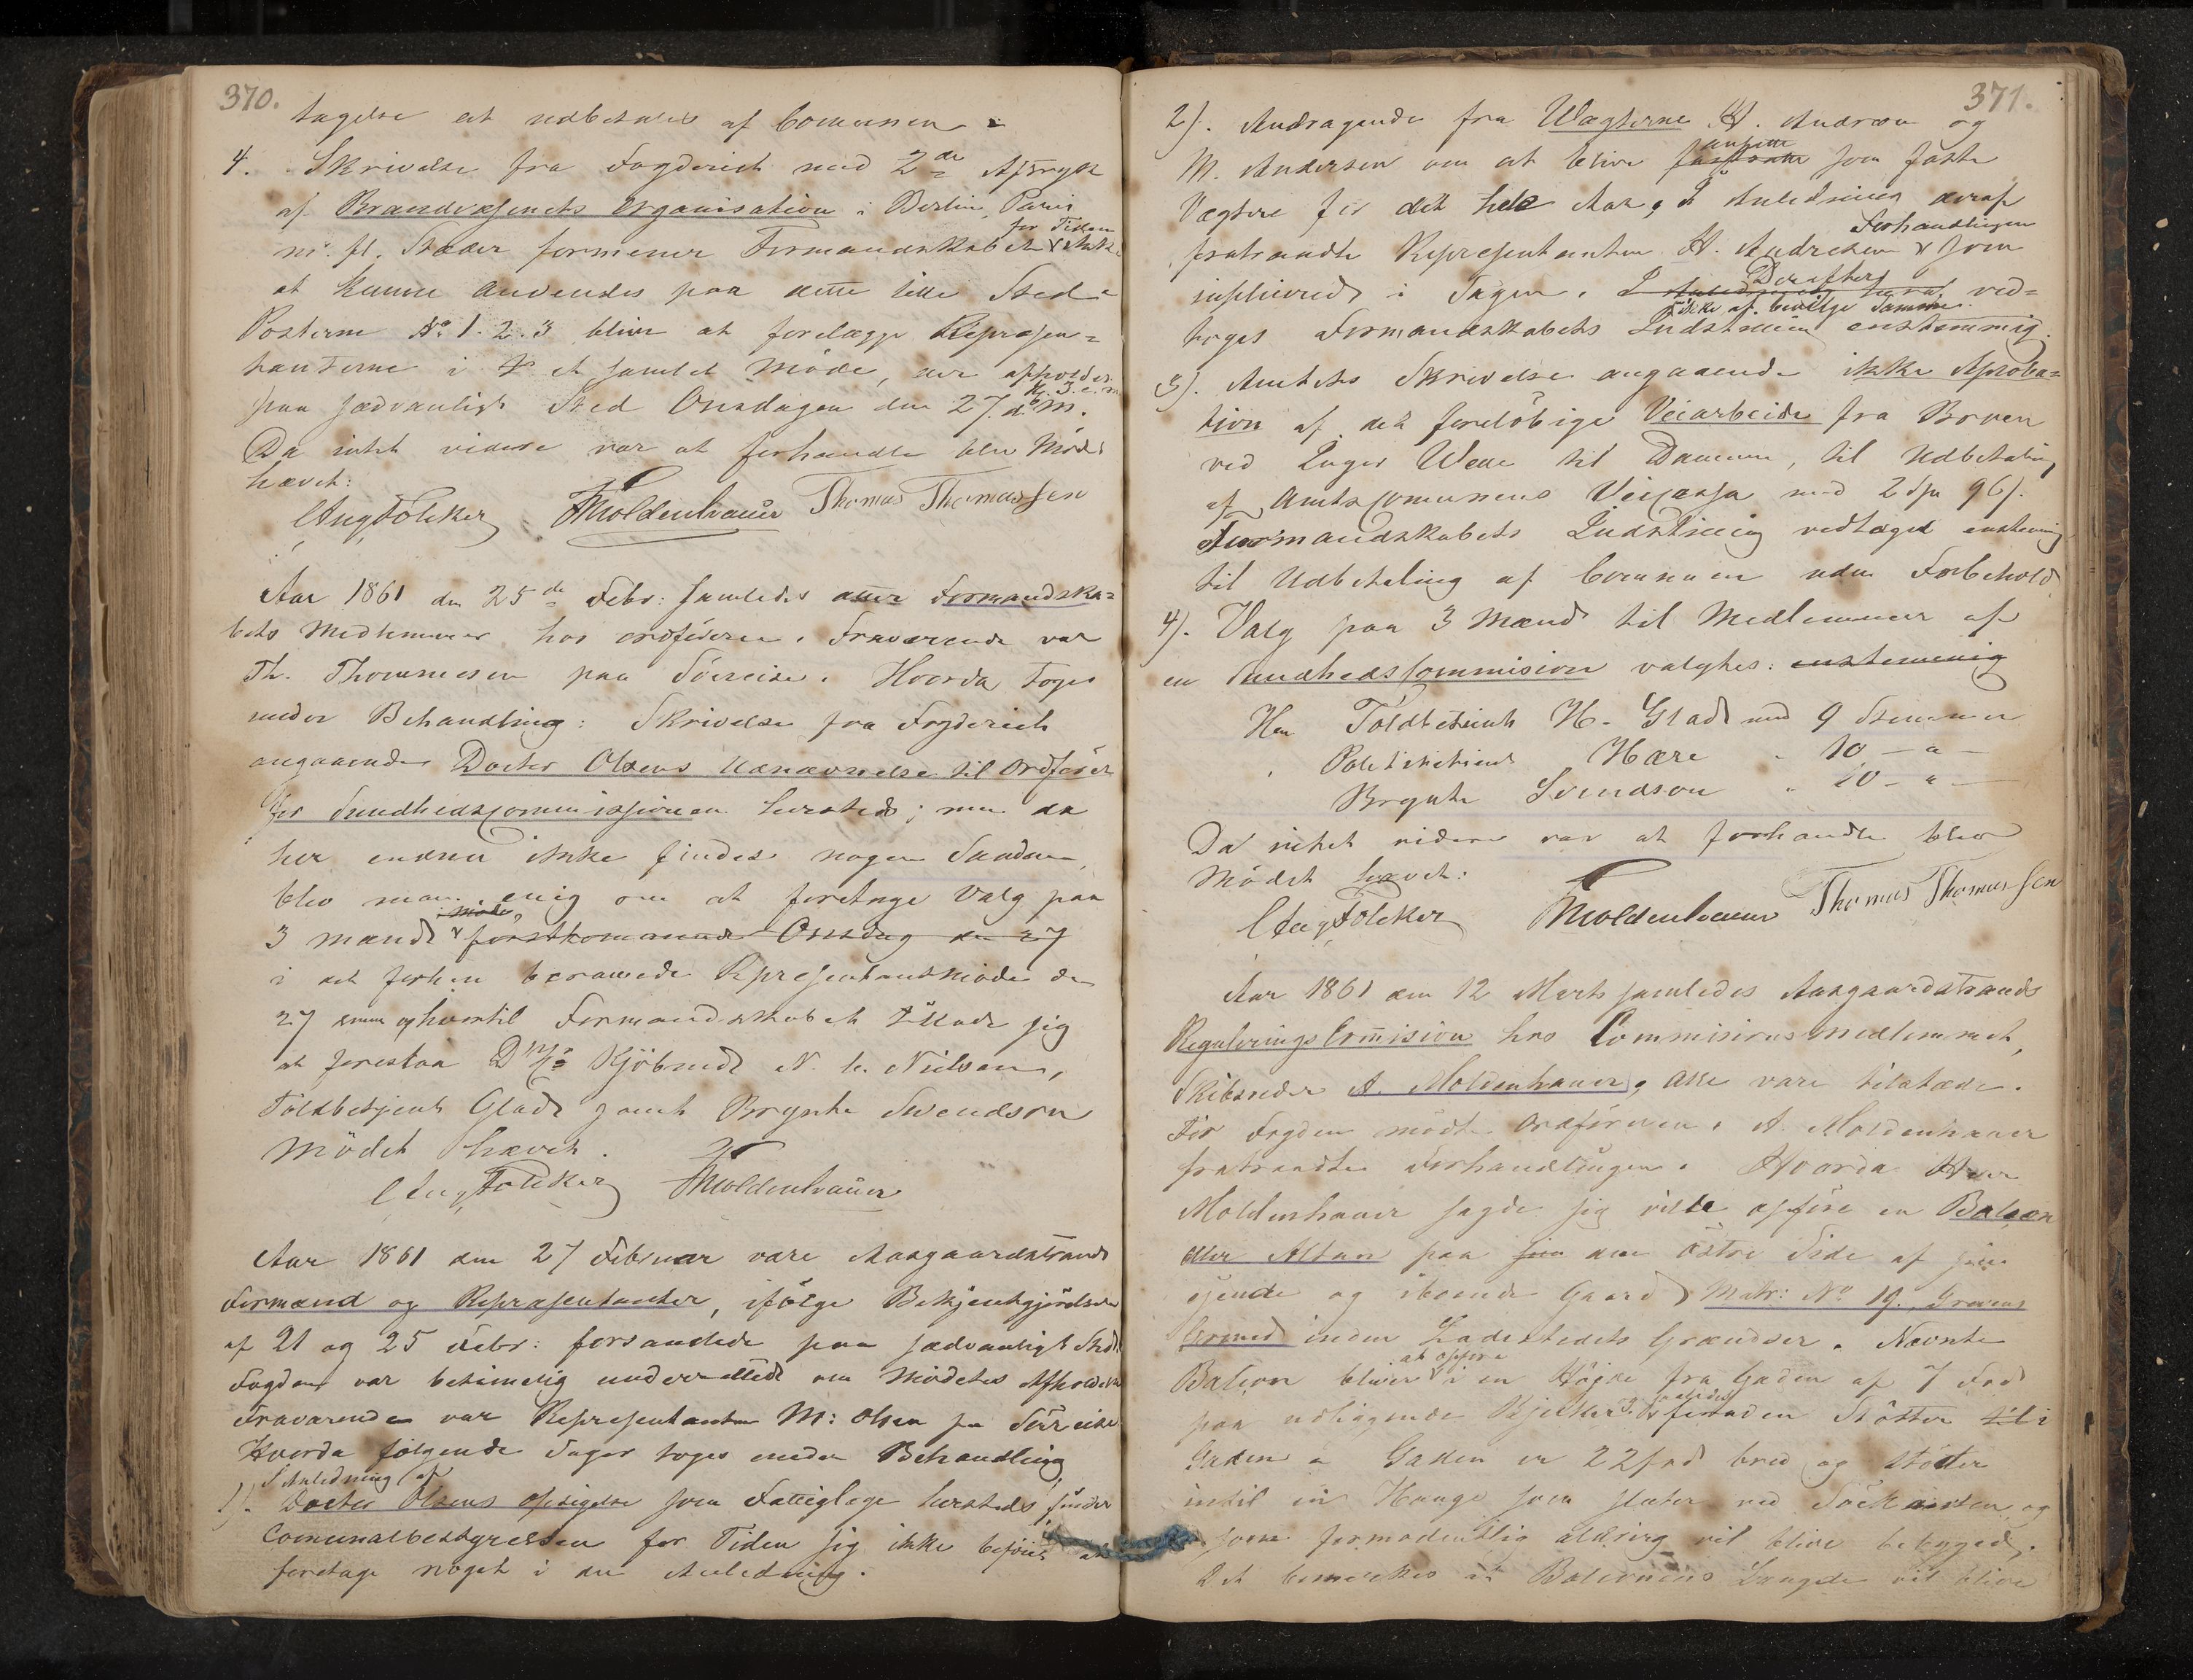 370.
tagelse at udbetales af Comunen
4. Skrivelse fra Fogderiet med 2de Aftryk
af Brandvæsenets Organisation i Berlin, Paris
m. fl. Stæder formener Formandskabet for Tiden ikke
at kunne anvendes paa dette lille Sted
Posterne No 1. 2. 3 bliver at forelægge Repræsen=
tanterne i et samlet Møde, der afholdes
paa sædvanligt Sted Onsdagen den 27 d. M.
Da intet videre var at forhandle blev Mødet
hævet:
C Aug Fölcker AMoldenhauer Thomas Thomassen
Aar 1861 den 25de Febr: samledes atter Formandska=
bets Medlemmer hos Ordføreren. Fraværende var
Th. Thommesen paa Søreise. Hvorda toges
under Behandling: Skrivelse fra Fogderiet
angaaende Doctor Olsens Udnævnelse til Ordfører
for Sundhedscommissionen hersteds; men da
her endnu ikke findes nogen Saadan,
blev man enig om at foretage Valg paa
3 Mænd i Møde førstkommende Onsdag den 27
i det forhen berammede Repræsentantmøde den
27 og hvortil Formandskabet tillod sig
at foreslaa Kjøbmd N. C. Nielsen,
Toldbetjent Glad samt Brynte Svendson
Mødet hævet.
C Aug Fölcker AMoldenhauer
Aar 1861 den 27 Februar vare Aasgaardstrands
Formænd og Repræsentanter, ifølge Bekjentgjørelse
af 21 og 25 Febr: forsamlede paa sædvanligt Sted
Fogden var betimelig underrettet om Mødets Afholdelse
Fraværende var Repræsentanten M: Olsen paa Søreise
Hvorda følgende Sager toges under Behandling
1). I Anledning af Doctor Olsens Opsigelse som Fattiglæge hersteds, finder
Comunalbestyrelsen for Tiden sig ikke beføiet at
foretage noget i den Anledning.
371.
2). Andragende fra Vægterne H. Andresen og
M. Andersen om at blive antagne som faste
Vægtere for det hele Aar, I Anledning deraf
fratraadte Repræsentanten H. Andresen Forhandlingen som
inhiberet i Sagen. Derefter ved=
toges Formandskabets Indstilling ikke at bevilge Samme enstemmig.
3). Amtets Skrivelse angaaende ikke Aproba=
tion af det foreløbige Veiarbeide fra Broen
ved Inger Wear til Dammen, til Udbetaling
af Amtscomunens Veicassa med 2 Spd 96 s.
Formandskabets Indstilling vedtaget enstemmig
til Udbetaling af Comunen uden Forbehold
4). Valg paa 3 Mænd til Medlemmer af
en Sundhedscommision valgtes: enstemmig
Hr. Toldbetjent H. Glad med 9 Stemmer
Politibetjent Hære " 10 — " —
Brynte Svendson " 10 — " —
Da intet videre var at forhandle blev
Mødet hævet:
C Aug Fölcker AMoldenhauer Thomas Thomassen
Aar 1861 den 12 Marts samledes Aasgaardstrands
Regulerings Comision hos Commisionsmedlemmet,
Skibsreder A. Moldenhauer, alle vare tilstæde.
For Fogden mødte Ordføreren. A. Moldenhauer
fratraadte Forhandlingen. Hvorda Herr
Moldenhauer sagde sig ville opføre en Balcon
eller Altan paa den østre Side af sin
eiende og iboende Gaard Matr: No 19. Grevens
Grund inden Ladestedets Grændser. Nævnte
Balcon bliver at opføre i en Høide fra Gaden af 7 Fod
paa udliggende Bjelker foruden Støtter til
Gaden. Gaden er 22 fod bred og støder
indtil en Hauge som støder ved Søekanten og
som formodentlig aldrig vil blive bebygged.
Det bemærkes at Balconens Længde vil blive